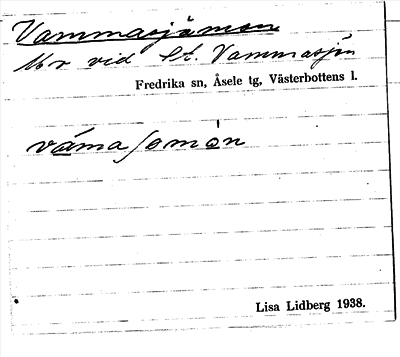 Vammasjåmon
Mo vid St. Vammasjön
Fredrika sn, Åsele tg, Västerbottens l.
våma ʃømòn
Lisa Lidberg 1938.